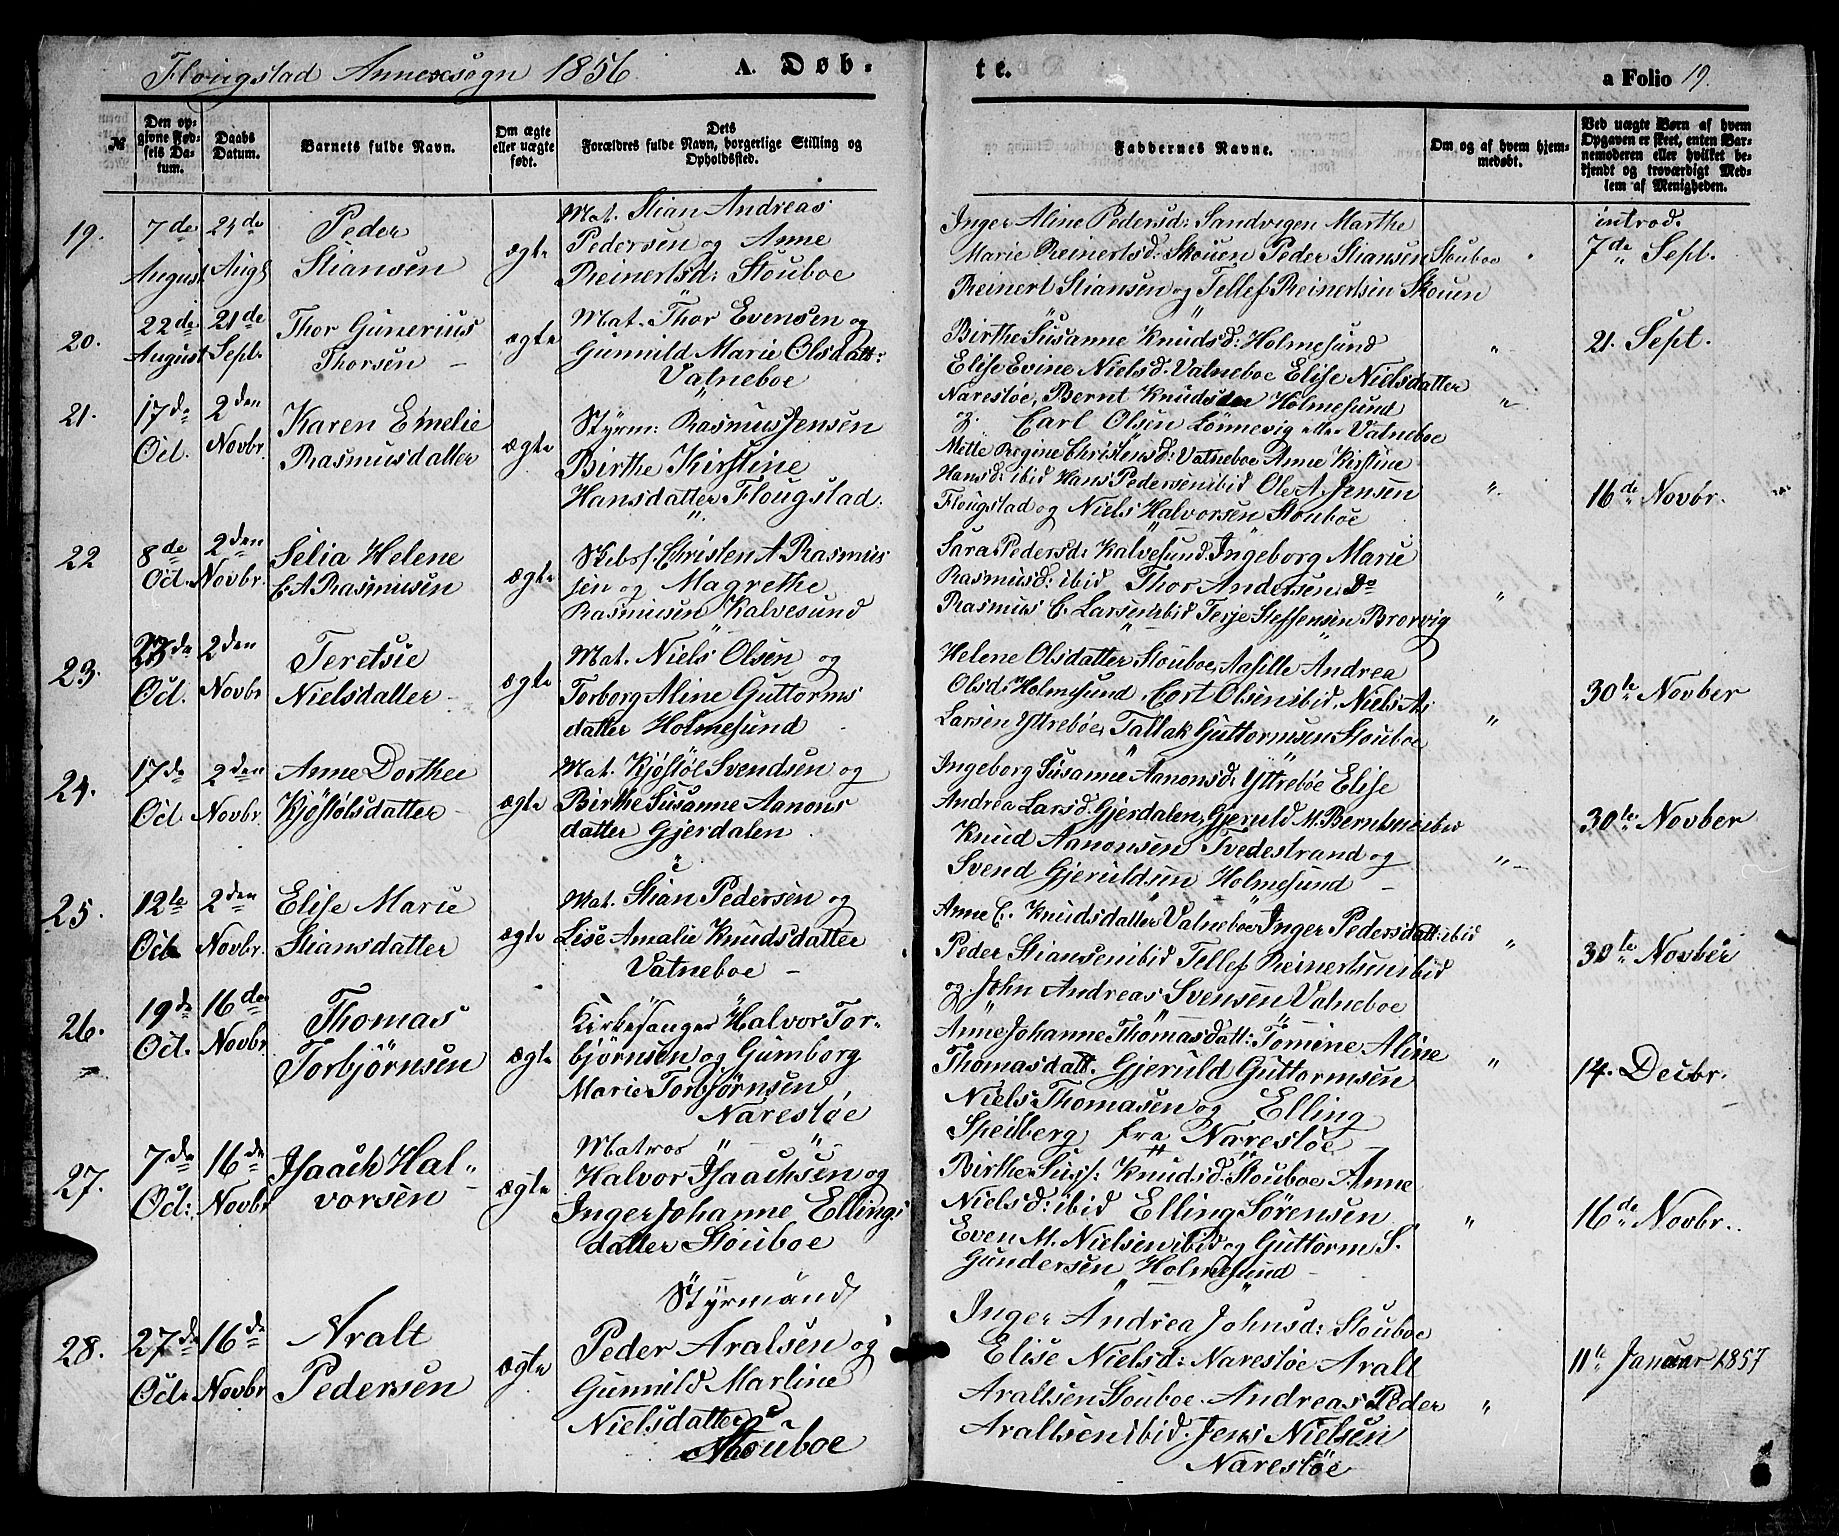 Flougstad Annexsogn 1856. A. Døb- te. a Folio 19.
№
Den op-
givne Fød-
sels Da-
tum.
Daabs
Datum.
Barnets fulde Navn.
Om ægte
eller uægte
født.
Dets
Forældres fulde Navn, borgerlige Stilling og
Opholdssted.
Faddernes Navne.
Om og af hvem hjem-
medøbt.
Ved uægte Børn af hvem
Opgaven er skeet, enten Bar-
nemoderen eller hvilket be-
kjendt og troværdigt Med-
lem af Menigheden.
19.
7de
August
24de
Augs
Peder
Stiansen
ægte
Mat. Stian Andreas
Pedersen og Anne
Reinertsd: Stouboe
Inger Aline Pedersd: Sandvigen Marthe
Marie Reinertsd: Skouen Peder Stiansen Stouboe
Reinert Stiansen og Tellef Reinertsen Skouen
introd.
7de Sept.
20.
22de
August
21de
Sept.
Thor Gunerius
Thorsen –
ægte
Mat. Thor Evensen og
Gunnild Marie Olsdatt:
Vatneboe
Birthe Susanne Knudsd: Holmesund
Elise Evine Nielsd. Vatneboe Elise Nielsdatter
Narestøe, Bernt Knudsen Holmesund
og Carl Olsen Lønnevig eller Vatneboe
"
21. Sept.
21.
17de
Oct.
2den
Novbr.
Karen Emelie
Rasmusdatter
ægte
Styrm: Rasmus Jensen
Birthe Kirstine
Hansdatter Flougstad.
Mette Regine Christensd: Vatneboe Anne Kirstine
Hansd: ibid Hans Pedersen ibid Ole A. Jensen
Flougstad og Niels Halvorsen Stouboe
"
16de Novbr.
22
8de
Oct.
2den
Novbr.
Selia Helene
C A Rasmusen
ægte
Skibsf. Christen A. Rasmus
sen og Magrethe
Rasmusen Kalvesund
Sara Pedersd: Kalvesund. Ingeborg Marie
Rasmusd: ibid Thor Andersen Do
Rasmus C. Larsen ibid Terje Steffensen Brorvig
"
23.
23de
Oct.
2den
Novbr
Teretsie
Nielsdatter
ægte
Mat. Niels Olsen og
Torborg Aline Guttorms
datter Holmesund
Helene Olsdatter Stouboe, Aasille Andrea
Olsd: Holmesund, Cort Olsen ibid, Niels As
Larsen Yttrebøe, Tallak Guttormsen Stouboe
"
30te Novber
24.
17de
Oct.
2den
Novbr.
Anne Dorthee
Kjøstølsdatter
ægte
Mat. Kjøstøl Svendsen og
Birthe Susanne Aanons
datter Gjerdalen
Ingeborg Susanne Aanonsd: Yttrebøe Elise
Andrea Larsd. Gjerdalen, Gjeruld M. Berntsen ibid
Knud Aanonsen Tvedestrand og
Svend Gjeruldsen Holmesund –
"
30te Novber
25.
12te
Oct
2den
Novbr.
Elise Marie
Stiansdatter
ægte
Mat. Stian Pedersen og
Lise Amalie Knudsdatter
Vatneboe –
Anne C. Knudsdatter Vatneboe Inger Pedersdatt: ibid
Peder Stiansen ibid Tellef Reinertsen ibid
og John Andreas Svensen Vatneboe
"
30te Novber
26.
19de
Oct.
16de
Novbr
Thomas
Torbjørnsen
ægte
Kirkesanger Halvor Tor-
bjørnsen og Gumborg
Marie Torbjørnsen
Narestøe
Anne Johanne Thomasdatt: Tomine Aline
Thomasdatt. Gjeruld Guttormsen
Niels Thomasen og Elling
Speilberg fra Narestøe
"
14. Decbr.
27.
7de
Oct:
16de
Novbr
Isaach Hal-
vorsen
ægte
Matros
Halvor Isaachsen og
Inger Johanne Ellings
datter Stouboe
Birthe Suss: Knudsd: Stouboe Anne
Nielsd: ibid Elling Sørensen
Even M. Nielsen ibid og Guttorm S.
Gundersen Holmesund –
"
16de Novbr.
28.
27de
Oct.
16de
Novbr
Aralt
Pedersen
ægte
Styrmand
Peder Aralsen og
Gunnild Martine
Nielsdatter
Stouboe
Inger Andrea Johnsd: Stouboe
Elise Nielsd: Narestøe Aralt
Araltsen Stouboe. Andreas Peder
Araltsen ibid. Jens Nielsen
Narestøe
"
11te Januar 1857